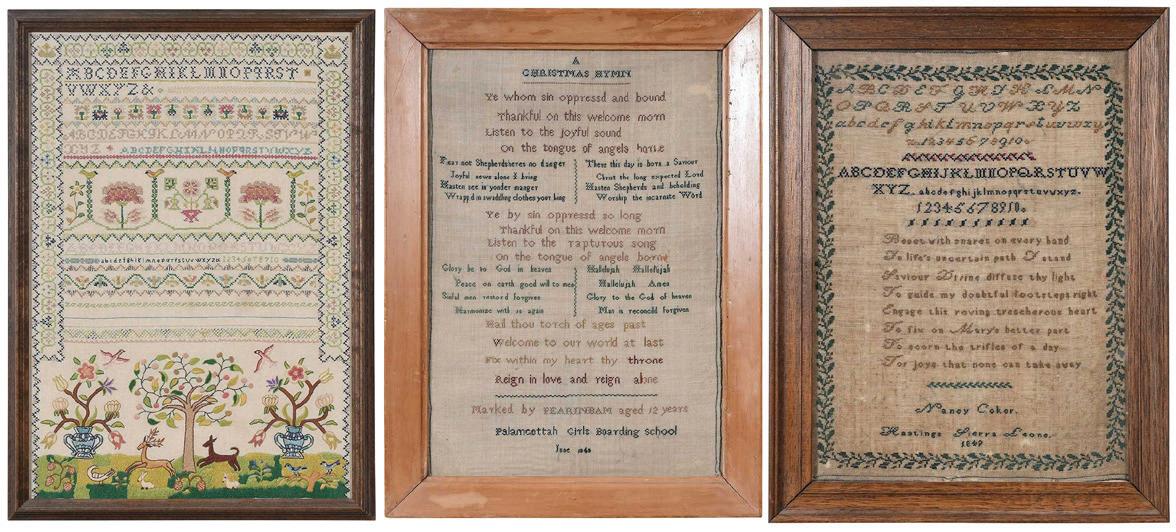 ABCDEFGHIKLMNOPQRST
VWXYZ&
ABCDEFGHIKLMNOPQRSTVW
XYZ ABCDEFGHIKLMNOPQRSTVWXYZ
abcdefghiklmnopqrstuvwxyz 12345678910
A
CHRISTMAS HYMN
Ye whom sin oppressd and bound
Thankful on this welcome morn
Listen to the joyful sound
On the tongue of angels borne
Fear not Shepherds heres no danger
Joyful news alone I bring
Hasten see in yonder manger
Wrapp'd in swaddling clothes your king
There this day is born a Saviour
Christ the long expected Lord
Hasten Shepherds and beholding
Worship the incarnate Word
Ye by sin oppressd so long
Thankful on this welcome morn
Listen to the rapturous song
On the tongue of angels borne
Glory be to God in heaven
Peace on earth good will to men
Sinful men restord forgiven
Harmonize with us again
Hallelujah Hallelujah
Hallelujah Amen
Glory to the God of heaven
Man is reconcild forgiven
Hail thou torch of ages past
Welcome to our world at last
Fix within my heart thy throne
Reign in love and reign alone
Marked by PEARINBAM aged 12 years
Palamcottah Girls Boarding School
June
ABCDEFGHIKLMN
OPQRSTUVWXYZ
abcdefghiklmnopqrstuvwxy
z12345678910
ABCDEFGHIJKLMNOPQRSTUVW
XYZ. abcdefghijklmnopqrstuvwxyz.
12345678910.
Beset with snares on every hand
In life's uncertain path I stand
Saviour Divine diffuse thy light
To guide my doubtful footsteps right
Engage this roving treacherous heart
To fix on Mary's better part
To scorn the trifles of a day
For joys that none can take away
Nancy Coker.
Hastings Sierra Leone.